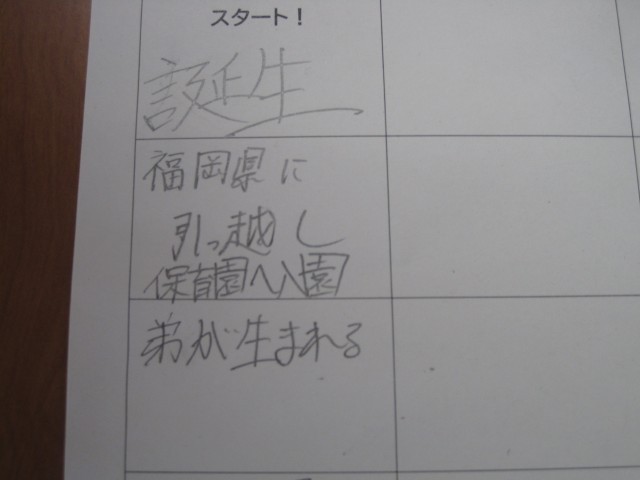 スタート！
誕生
福岡県に
引っ越し
保育園へ入園
弟が生まれる